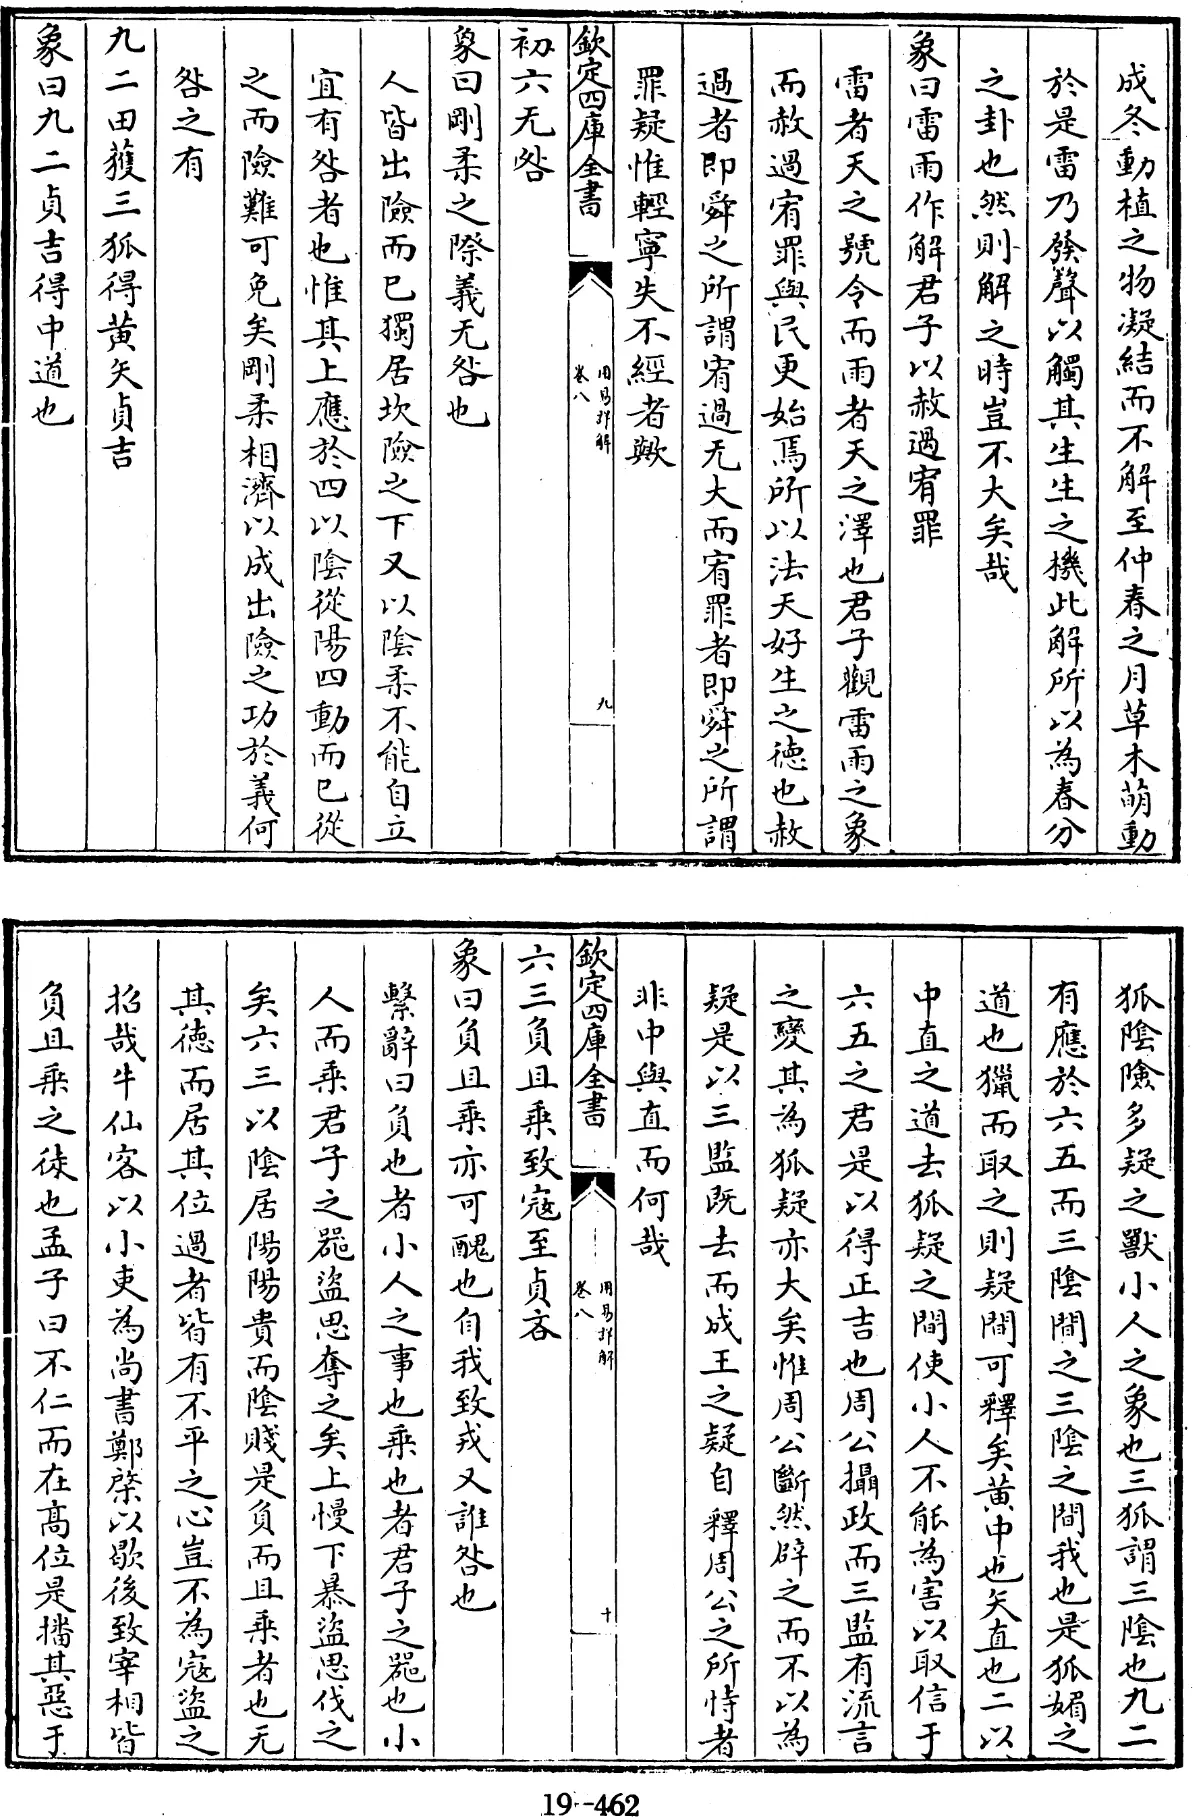 成冬動植之物凝結而不解至仲春之月草木萌動
於是雷乃發聲以觸其生生之機此解所以為春分
之卦也然則解之時豈不大矣哉
象曰雷雨作解君子以赦過宥罪
雷者天之號令而雨者天之澤也君子觀雷雨之象
而赦過宥罪與民更始焉所以法天好生之德也赦
過者即舜之所謂宥過无大而宥罪者即舜之所謂
罪疑惟輕寧失不經者歟
欽定四庫全書
周易詳解
卷八
九
初六无咎
象曰剛柔之際義无咎也
人皆出險而已獨居坎險之下又以陰柔不能自立
宜有咎者也惟其上應於四以陰從陽四動而已從
之而險難可免矣剛柔相濟以成出險之功於義何
咎之有
九二田獲三狐得黃矢貞吉
象曰九二貞吉得中道也
狐陰險多疑之獸小人之象也三狐謂三陰也九二
有應於六五而三陰間之三陰之間我也是狐媚之
道也獵而取之則疑間可釋矣黃中也矢直也二以
中直之道去狐疑之間使小人不能為害以取信于
六五之君是以得正吉也周公攝政而三監有流言
之變其為狐疑亦大矣惟周公斷然辟之而不以為
疑是以三監既去而成王之疑自釋周公之所恃者
非中與直而何哉
欽定四庫全書
周易詳解
卷八
十
六三負且乘致寇至貞吝
象曰負且乘亦可醜也自我致戎又誰咎也
繫辭曰負也者小人之事也乘也者君子之器也小
人而乘君子之器盜思奪之矣上慢下暴盜思伐之
矣六三以陰居陽陽貴而陰賤是負而且乘者也无
其德而居其位過者皆有不平之心豈不為寇盜之
招哉牛仙客以小吏為尚書鄭綮以歇後致宰相皆
負且乘之徒也孟子曰不仁而在高位是播其惡于
19-462